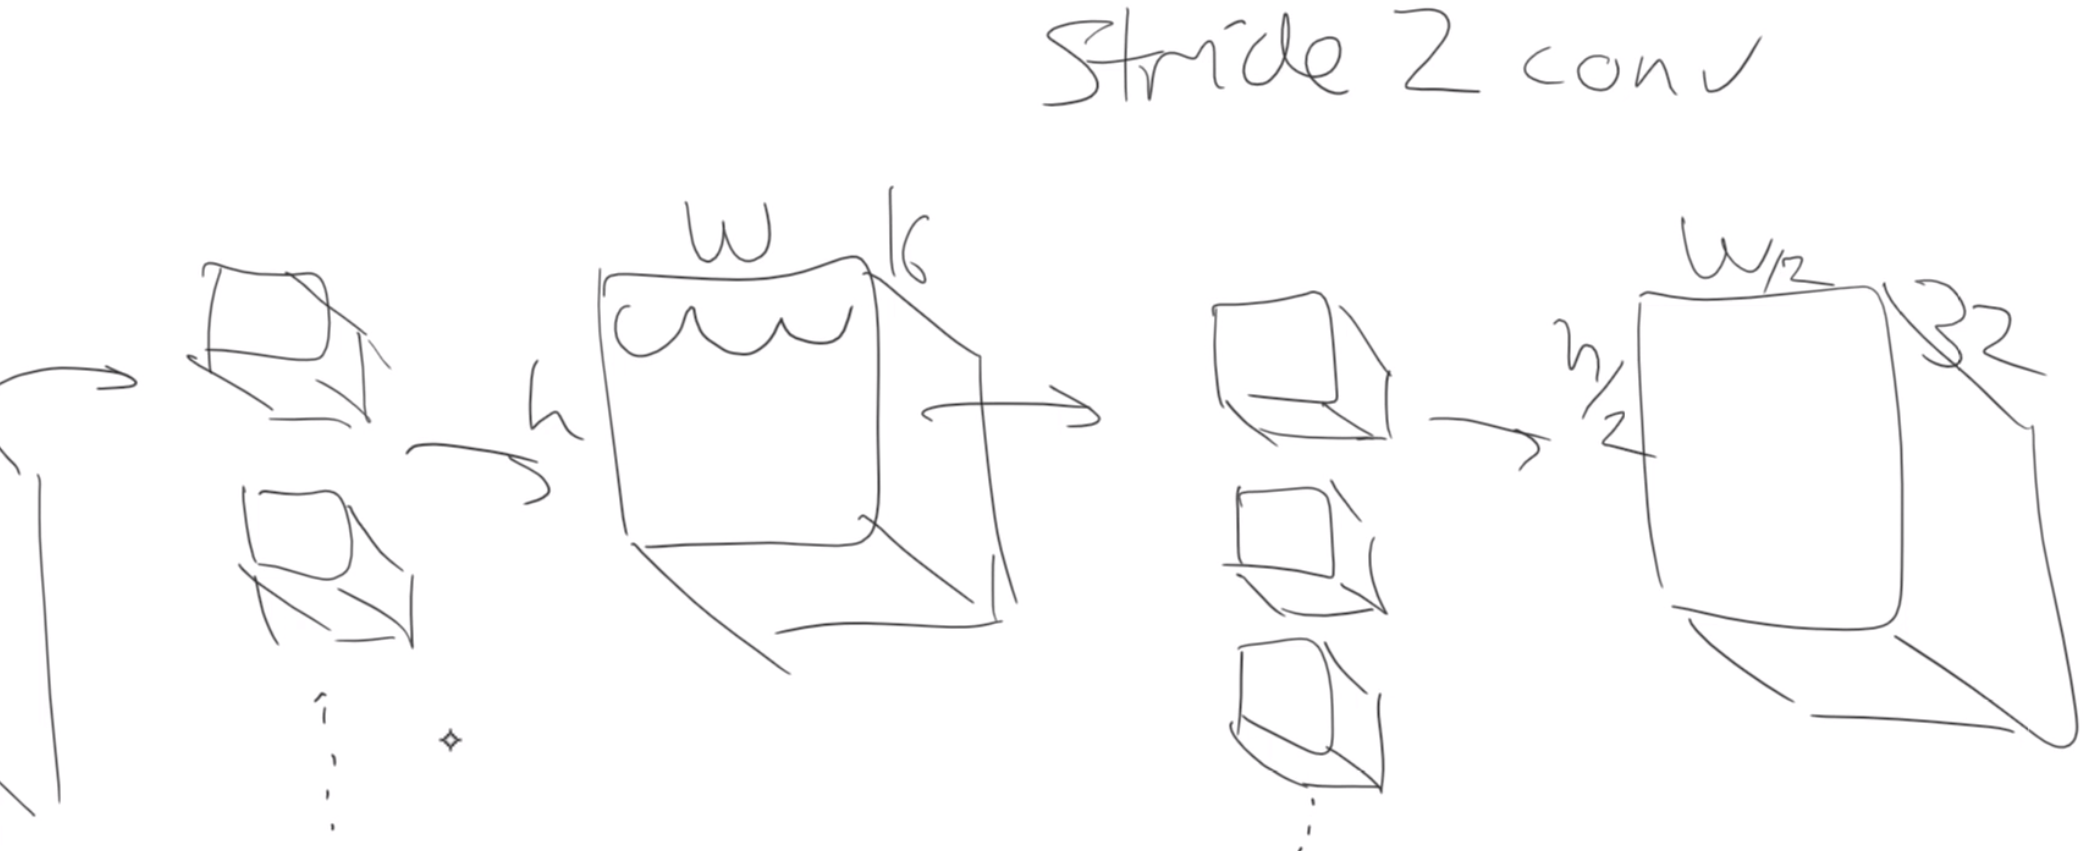 Stride 2 conv
w
16
h
w/2
h/2
32